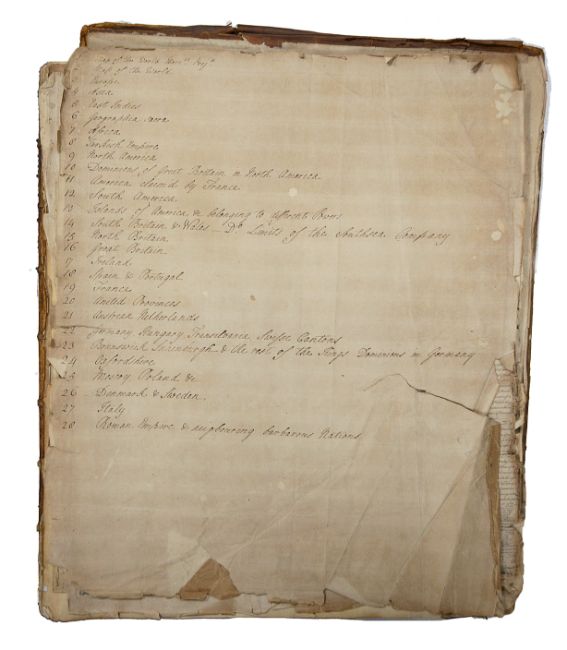 Map of the World
Map of the World
Europe
4 Asia
5 East Indies
6 Geographia Sacra
7 Africa
8 Turkish Empire
9 North America
10 Dominions of Great Britain in North America
11 America claimed by France
12 South America
13 Islands of America & belonging to different Powers
14 South Britain & Wales Do. Limits of the Southsea Company
15 North Britain
16 Great Britain
17 Ireland
18 Spain & Portugal
19 France
20 United Provinces
21 Austrian Netherlands
22 Germany Hungery Transilvania Swisse Cantons
23 Brunswick & the rest of the Kings Dominions in Germany
24 Oxfordshire
25 Moscvy Poland &c
26 Denmark & Sweden
27 Italy
28 Roman Empire & neighbouring barbarous Nations